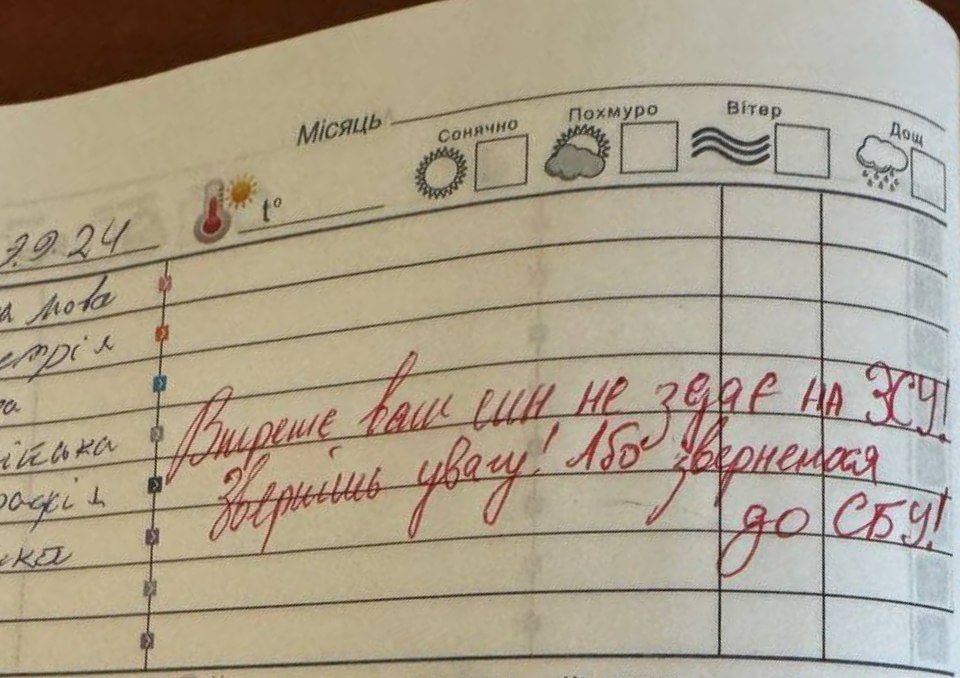 Місяць
Сонячно
Похмуро
Вітер
Дощ
t°
9.24
а мова
етрія
Вперше ваш син не здає на ЗСУ!
Звернішь увагу! Або звернемося
до СБУ!